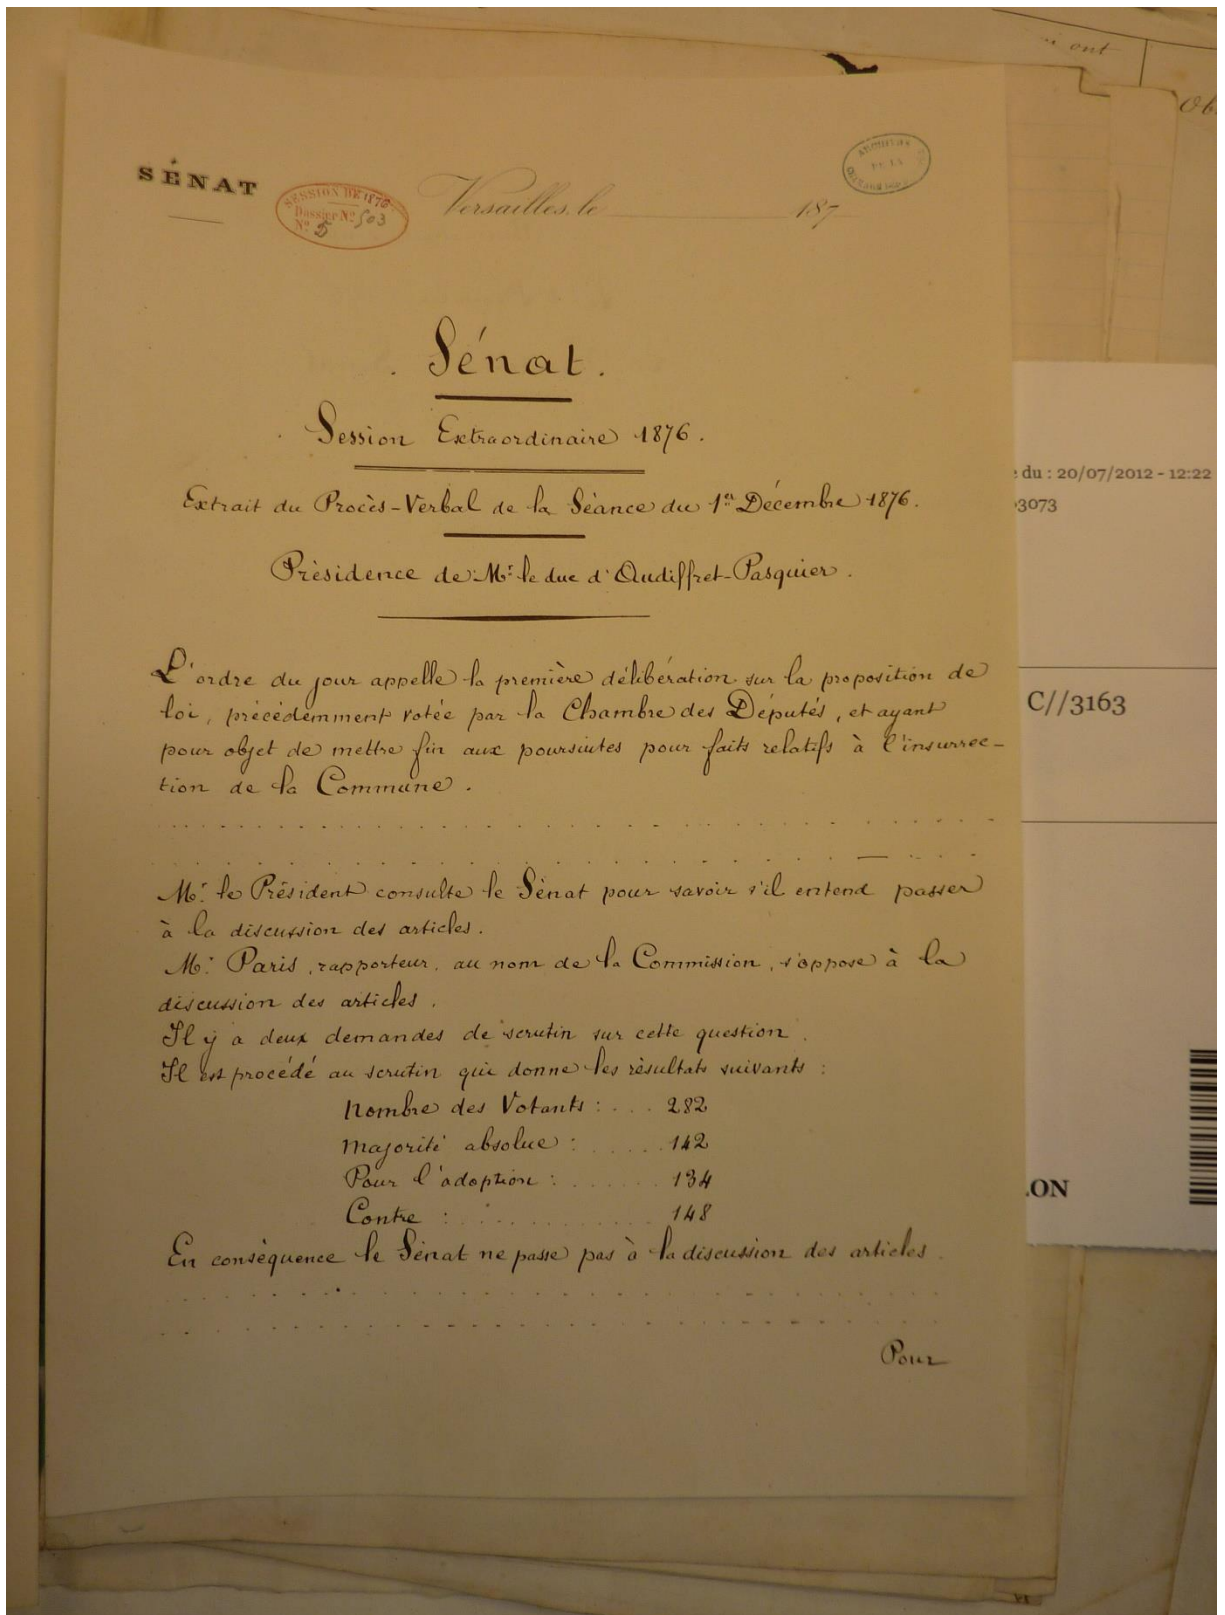 ont
Ob
SÉNAT
SESSION DE 1876
Dossier Nº 503
Nº 5
Versailles, le 187
ARCHIVES
DE LA
Sénat.
Session Extraordinaire 1876.
Extrait du Procès-Verbal de la Séance du 1er Décembre 1876.
Présidence de Mr le duc d'Audiffret-Pasquier.
L'ordre du jour appelle la première délibération sur la proposition de
loi, précédemment votée par la Chambre des Députés, et ayant
pour objet de mettre fin aux poursuites pour faits relatifs à l'insurrec-
tion de la Commune.
Mr le Président consulte le Sénat pour savoir s'il entend passer
à la discussion des articles.
Mr Paris, rapporteur, au nom de la Commission, s'oppose à la
discussion des articles.
Il y a deux demandes de scrutin sur cette question.
Il est procédé au scrutin qui donne les résultats suivants :
Nombre des Votants : . . . 282
Majorité absolue : . . . . . 142
Pour l'adoption : . . . . . . 134
Contre : . . . . . . . . . . . 148
En conséquence le Sénat ne passe pas à la discussion des articles.
Pour
du : 20/07/2012 - 12:22
3073
C//3163
ON